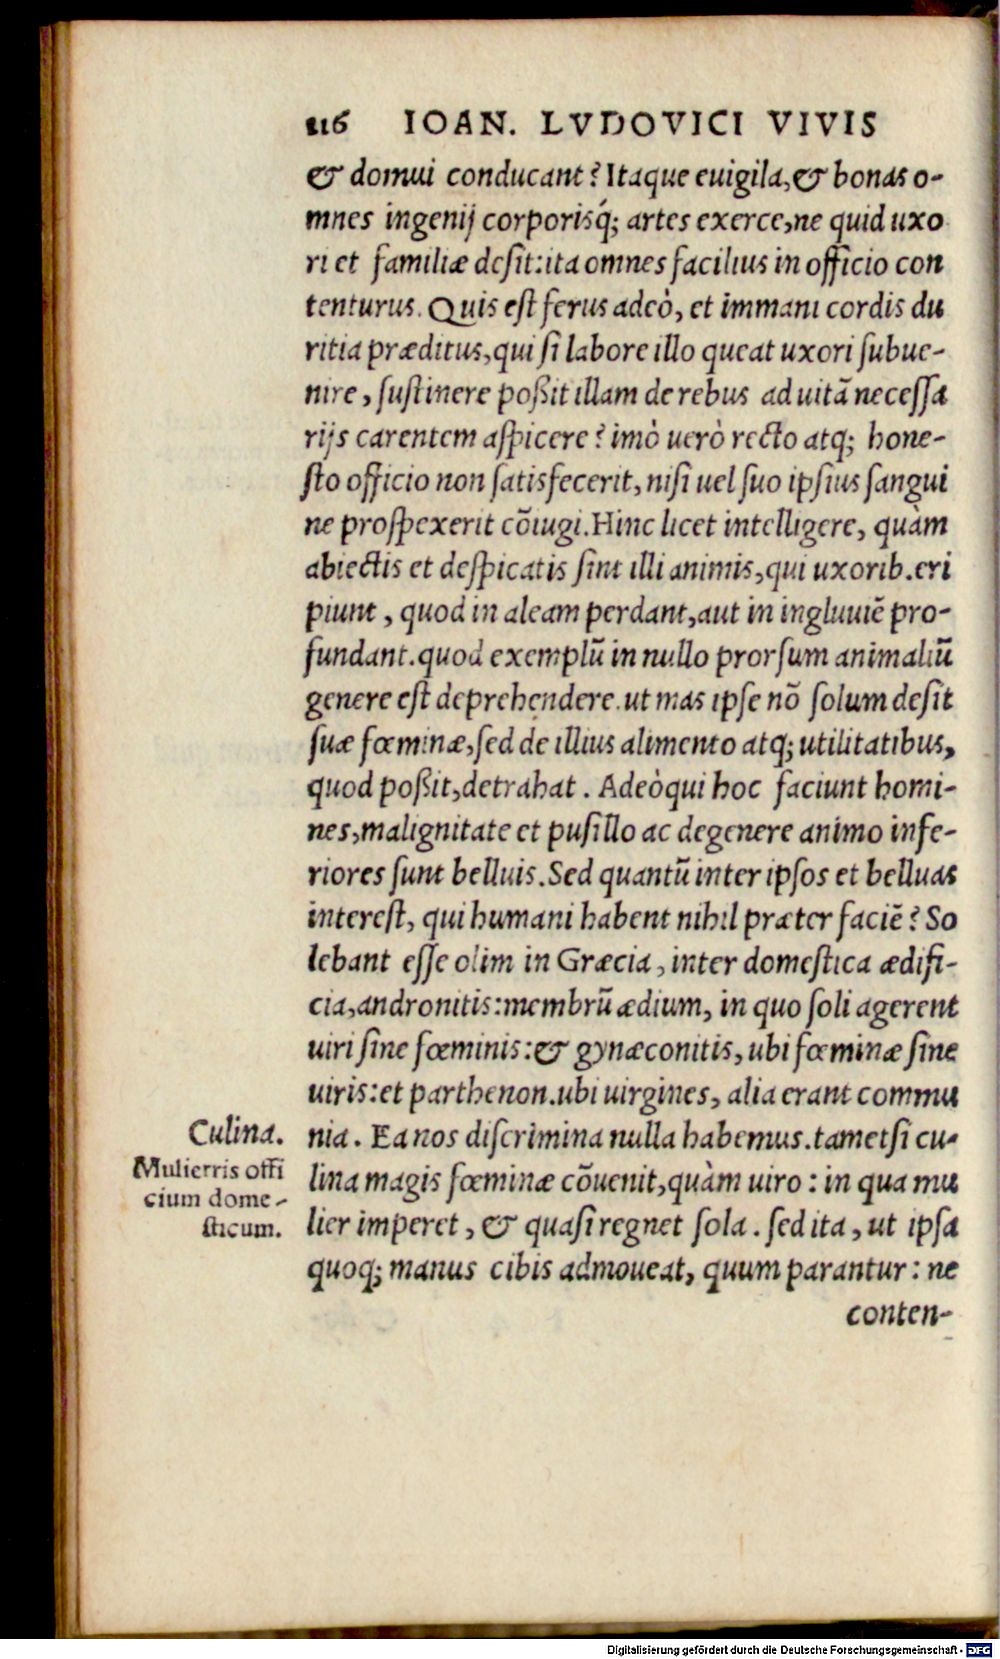 116 IOAN. LVDOVICI VIVIS
& domui conducant? Itaque euigila, & bonas o-
mnes ingenij corporisq́; artes exerce, ne quid uxo
ri et familiæ desit: ita omnes facilius in officio con
tenturus. Quis est ferus adeò, et immani cordis du
ritia præditus, qui si labore illo queat uxori subue-
nire, sustinere poßit illam de rebus ad uitā necessa
rijs carentem aspicere? imò uerò recto atq; hone-
sto officio non satisfecerit, nisi uel suo ipsius sangui
ne prospexerit cōiugi. Hinc licet intelligere, quàm
abiectis et despicatis sint illi animis, qui uxorib. eri
piunt, quod in aleam perdant, aut in ingluuiē pro-
fundant. quod exemplū in nullo prorsum animaliū
genere est deprehendere. ut mas ipse nō solum desit
suæ fœminæ, sed de illius alimento atq; utilitatibus,
quod poßit, detrahat. Adeò qui hoc faciunt homi-
nes, malignitate et pusillo ac degenere animo infe-
riores sunt belluis. Sed quantū inter ipsos et belluas
interest, qui humani habent nihil præter faciē? So
lebant esse olim in Græcia, inter domestica ædifi-
cia, andronitis: membrū ædium, in quo soli agerent
uiri sine fœminis: & gynæconitis, ubi fœminæ sine
uiris: et parthenon. ubi uirgines, alia erant commu
nia. Ea nos discrimina nulla habemus. tametsi cu-
lina magis fœminæ cōuenit, quàm uiro: in qua mu
lier imperet, & quasi regnet sola. sed ita, ut ipsa
quoq; manus cibis admoueat, quum parantur: ne
conten-
Culina.
Mulierris offi
cium dome-
sticum.
Digitalisierung gefördert durch die Deutsche Forschungsgemeinschaft - DFG